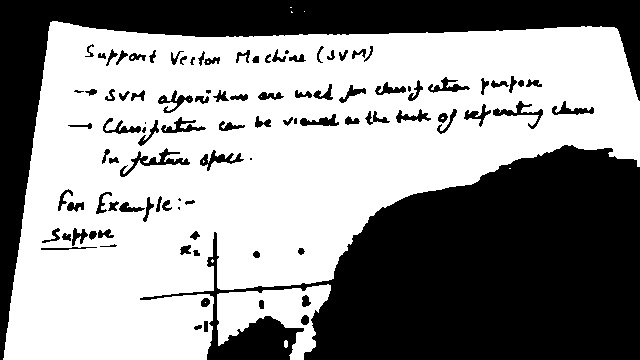 Support Vector Machine (SVM)
→ SVM algorithms are used for classification purpose
→ Classification can be viewed as the task of separating classes
in feature space.
For Example:-
Suppose
x₂
0 1 2
-1